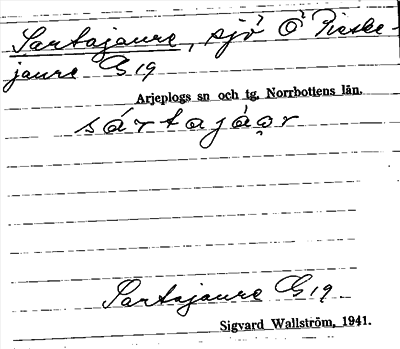 Sartajaure, sjö Ö Pieske-
jaure G 19
Arjeplogs sn och tg, Norrbottens län.
sártajá̀o̥r
Sartajaure G 19
Sigvard Wallström, 1941.